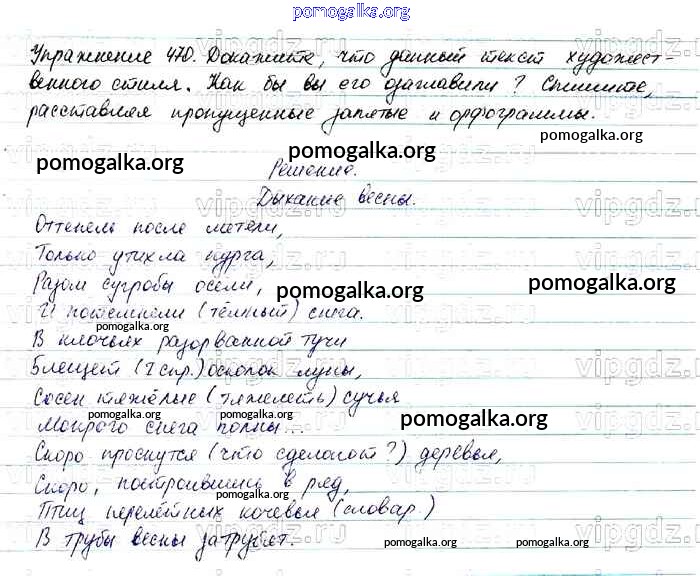 pomogalka.org
Упражнение 470. Докажите, что данный текст художест-
венного стиля. Как бы вы его озаглавили? Спишите,
расставляя пропущенные запятые и орфограммы.
pomogalka.org
pomogalka.org
Решение.
vipgdz.ru
Дыхание весны.
Оттепель после метели,
Только утихла пурга,
Разом сугробы осели,
pomogalka.org
pomogalka.org
И потемнели (тёмный) снега.
pomogalka.org
В клочьях разорванной тучи
Блещет (I спр.) осколок луны,
pomogalka.org
Сосен тяжёлые (тяжелеть) сучья
pomogalka.org
pomogalka.org
pomogalka.org
Мокрого снега полны...
Скоро проснутся (что сделают?) деревья,
Скоро, построившись в ряд,
pomogalka.org
Птиц перелётных кочевья (словар.)
pomogalka.org
В трубы весны затрубят.
pomogalka.org
pomogalka.org